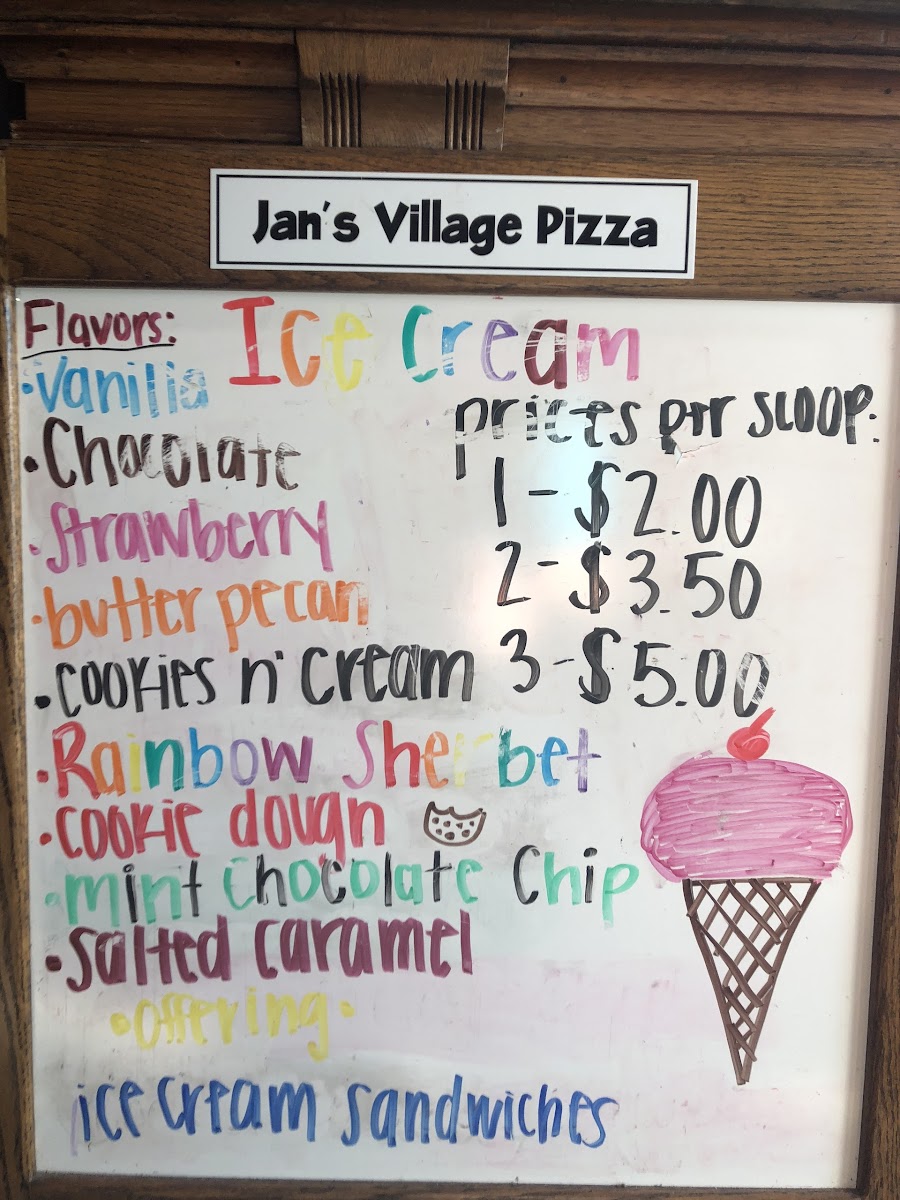 Jan's Village Pizza
Flavors:
Ice Cream
• Vanilla
• Chocolate
• Strawberry
• butter pecan
• cookies n' cream
• Rainbow Sherbet
• cookie dough
• mint chocolate Chip
• salted caramel
prices per scoop:
1 - $2.00
2 - $3.50
3 - $5.00
• offering •
ice cream sandwiches